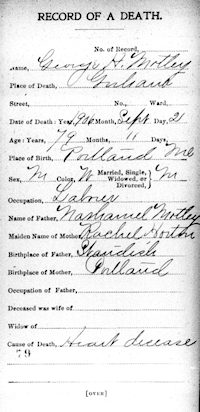 RECORD OF A DEATH.
No. of Record,
Name, George H. Motley
Place of Death, Gorham
Street, No., Ward,
Date of Death: Year, 1906 Month, Sept Day, 21
Age: Years, 79 Months, 11 Days,
Place of Birth, Portland Me
Sex, M Color, W Married, Single, Widowed, or Divorced, } M
Occupation, Laborer
Name of Father, Nathaniel Motley
Maiden Name of Mother, Rachel
Birthplace of Father, Standish
Birthplace of Mother, Portland
Occupation of Father,
Deceased was wife of
Widow of
Cause of Death, Heart disease
79
[OVER]